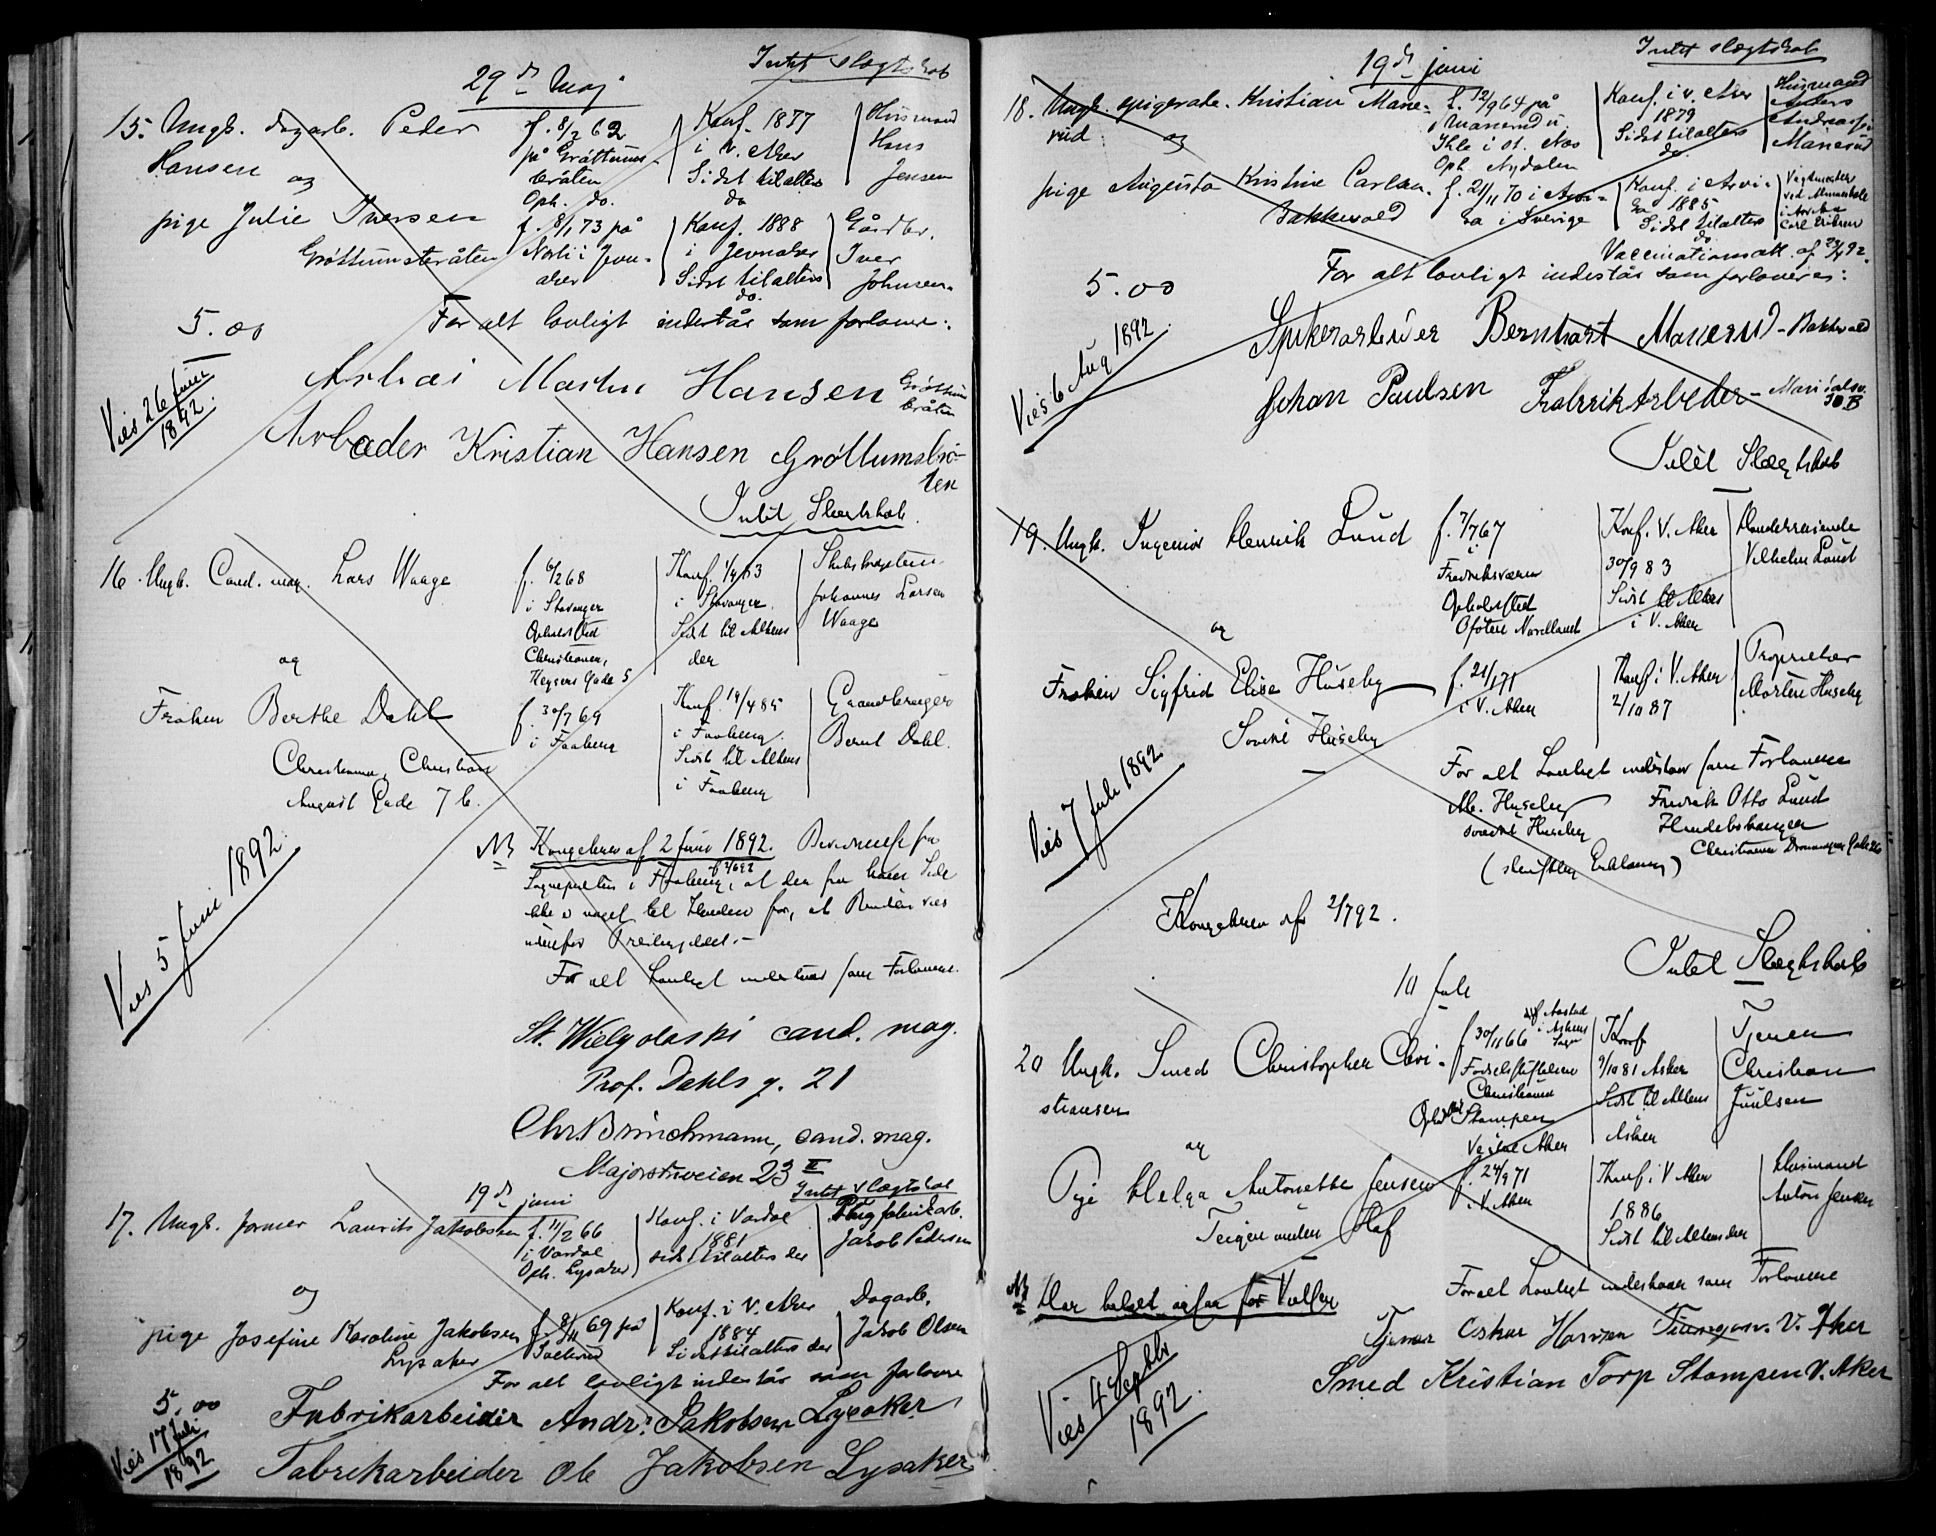 29de Maj
Intet slægtskab
15. Ungk. dagarb. Peder Hansen
og
pige Julie Iversen
Grøttumsbråten
f. 8/2 62
på Grøttums-
bråten
Oph. do.
Konf. 1877
i V. Aker
Sidst til alters
do
Husmand
Hans
Jensen
f. 8/1 73 på
Norli i Jevn-
aker
Konf. 1888
i Jevnaker
Sidst til alters
do.
Gårdbr.
Iver
Johnsen.
5.00
For alt lovligt indestår som forlover:
Martin Hansen Grøttums
bråten
Arbeder Kristian Hansen Grøttumsbrå-
ten
Viet 26 Juni
1892.
Intet Slægtskab.
16. Ungk. Cand. mag. Lars Waage
f. 6/2 68
i Stavanger
Opholdssted
Christiania,
Keysers Gade 5
i Stavanger.
Sidst til Alters
der
Skibskaptein
Johannes Larsen
Waage
og
Frøken Berthe Dahl
Christiania, Christian
August Gade 7 b.
f. 30/7 69
i Faaberg
Konf. 19/4 85
i Faaberg.
Sidst til Alters
i Faaberg
Gaardbruger
Bernt Dahl.
NB Kongebrev af 2 Juni 1892.
Sognepresten i Faaberg, at der fra hans Side
ikke er noget til Hinder for, at Brudeparret vies
udenfor Præstegjeldet.-
For alt Lovligt indestaar som Forlovere.
St. Wielgolaski cand. mag.
Prof. Dahls g. 21
Chr. Brinchmann, cand. mag.
Majorstuveien 23 II
Viet 5 Juni 1892.
19de juni
Intet slægtskab
17. Ungk. former Laurits Jakobsen
f. 11/2 66
i Vardal
Oph. Lysaker
Konf. i Vardal
1881
sidst til alters der
Jakob Pedersen
og
pige Josefine Karoline Jakobsen
Lysaker
f. 8/11 69 på
Sollerud
Konf. i V. Aker
1884
Sidst til alters der
Dagarb.
Jakob Olsen
For alt lovligt indestår som forlovere
5.00
Fabrikarbeider Andr. Jakobsen Lysaker
Fabrikarbeider Ole Jakobsen Lysaker
Viet 17 Juli
1892
19de juni
Intet slægtskab
18. Ungk. spigerarb. Kristian Mane-
rud
og
f. 12/9 64 på
Manerud u.
Oph. Nydalen
Konf. i V. Aker
1879
Sidst til alters
do.
Husmand
Anders
Andreas
Manerud
pige Augusta Kristine Carlsen.
Bakkevold
f. 21/11 70 i Arvi-
ka i Sverige
Konf. i Arvi-
ka 1885
Sidst til alters
do.
Carl Eriksen
Vaccinationsatt. af
5.00
For alt lovligt indestår som forlovere:
Spikerarbeider Bernhart Manerud - Bakkevold
Johan Paulsen Fabrikkarbeder - Maridalsv.
30 B
Viet 6 Aug 1892.
Intet Slægtskab
19. Ungk. Ingeniør Henrik Lund
f. 7/7 67
i
Fredriksværn
Opholdssted
Ofoten Nordland
Konf. V. Aker
30/9 83
Sidst til Alters
i V. Aker
Handelsreisende
Vilhelm Lund
og
Frøken Sigfrid Elise Huseby
Huseby
f. 21/1 71
i V. Aker
Konf. i V. Aker
2/10 87
Proprietær
Morten Huseby
For alt Lovligt indestaar som Forlovere
M. Huseby
Huseby
(skriftlig Erklæring)
Fredrik Otto Lund
Christiania Drammensv.
Viet 7 Juli 1892
Kongebrev af 2/7 92.
Intet Slægtskab
10 Juli
20 Ungk. Smed Christopher Chri-
stiansen
f. 30/11 66
i Askers
Sogn
Fødselsstiftelsen
Christiania
Stampen
Vestre Aker
Konf
2/10 81 Asker
Sidst til Alters
i
Asker
Tjener
Christian
Juulsen
og
Pige Helga Antonette Jensen
Teigen under Hof
f. 24/9 71
i V. Aker
Konf. i V. Aker
1886
Sidst til Alters der
Husmand
Anton Jensen
For alt Lovligt indestaar som Forlovere
Tjener Oskar Hansen V. Aker
Smed Kristian Torp Stampen V. Aker
Viet 4 Septbr
1892.